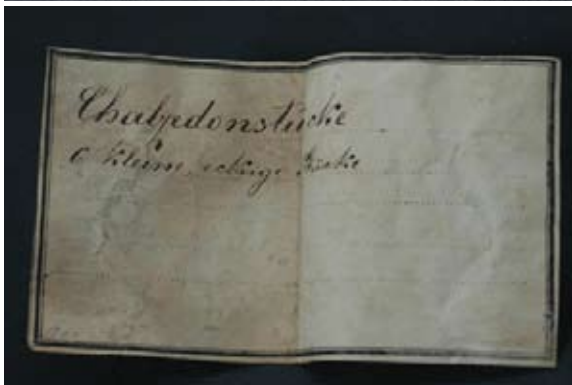 Chalzedonstücke
kleine, eckige Stücke